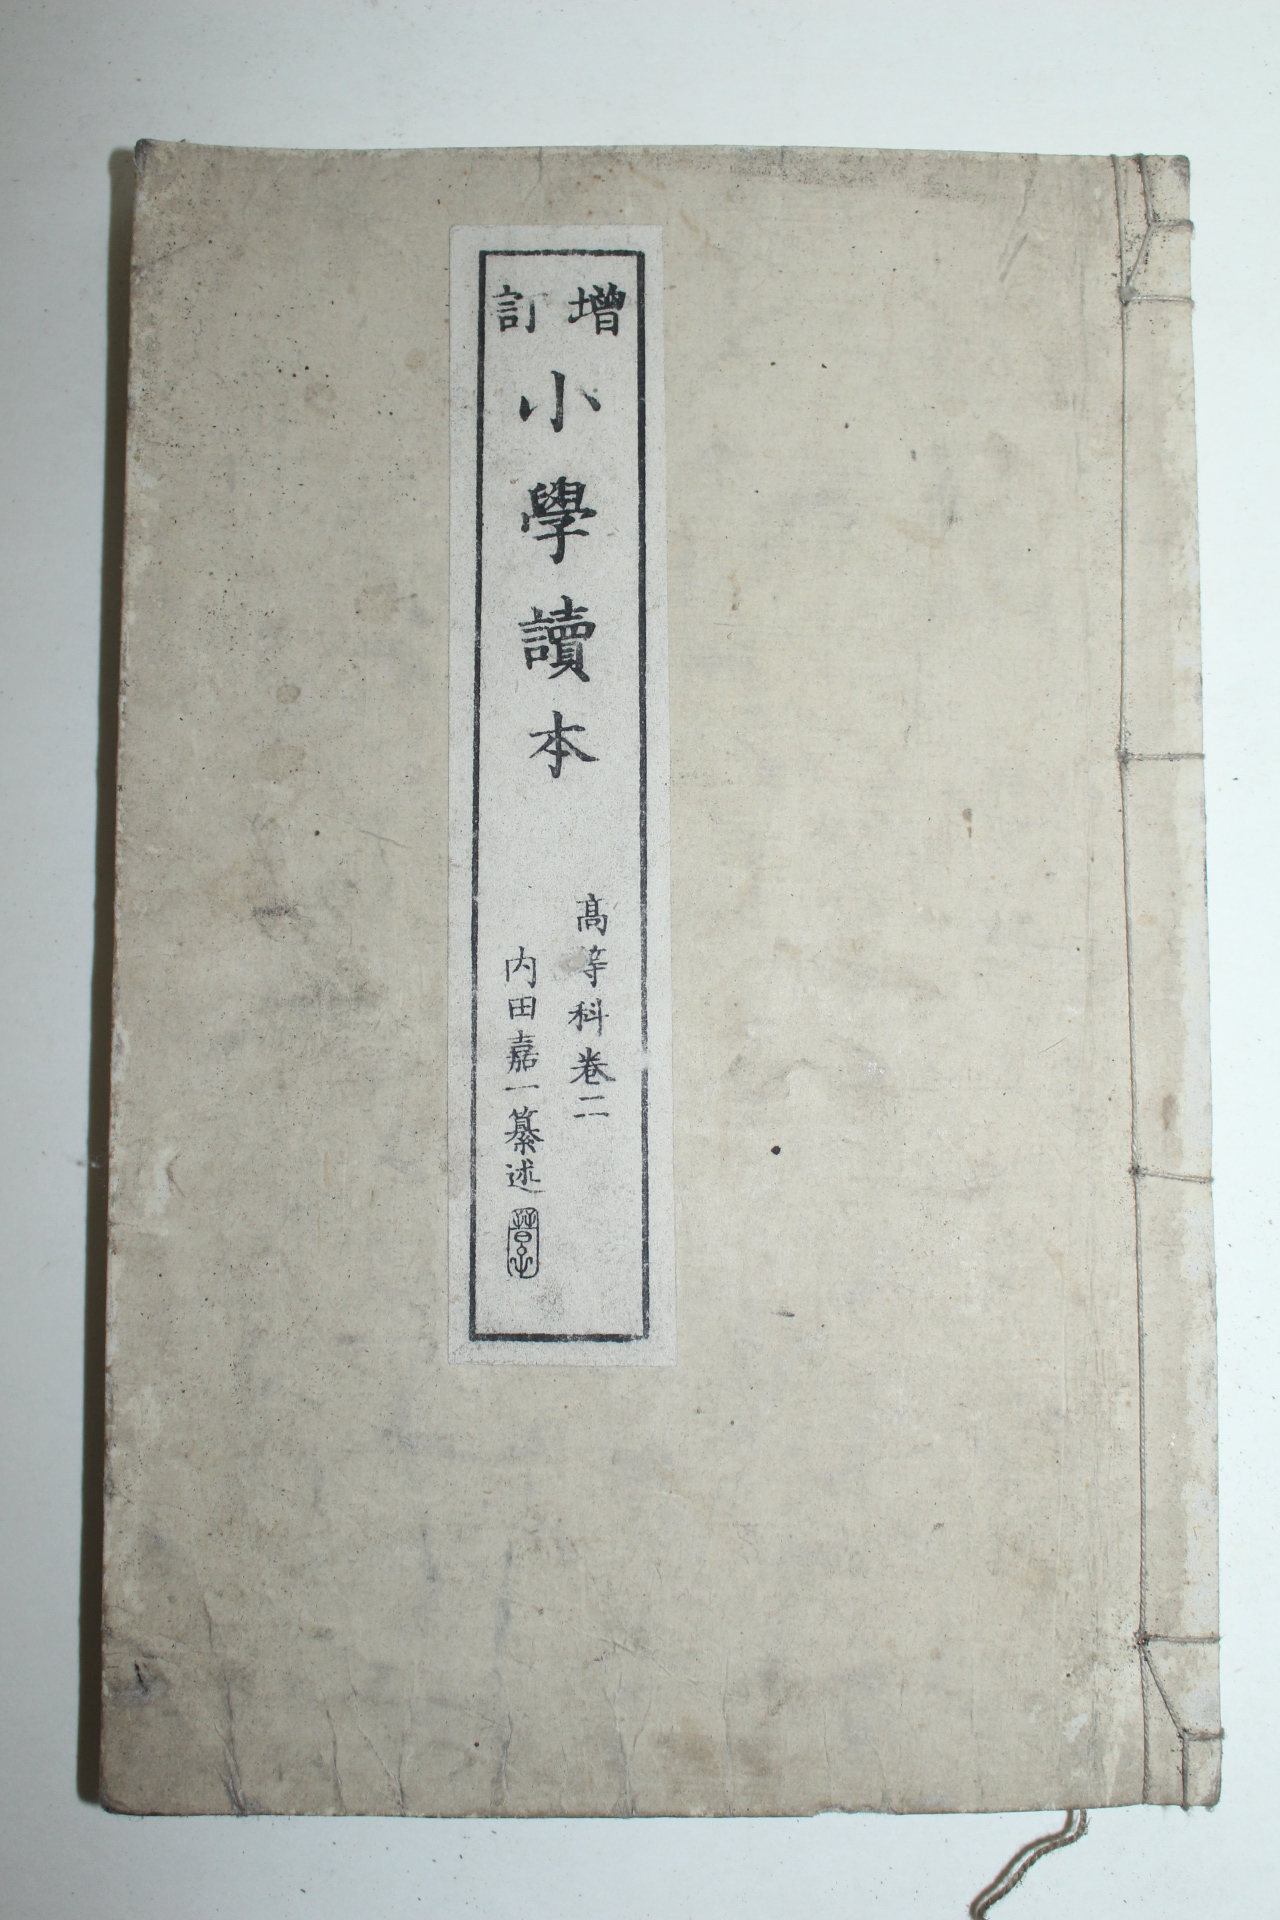 增訂
小學讀本
高等科卷二
内田嘉一纂述